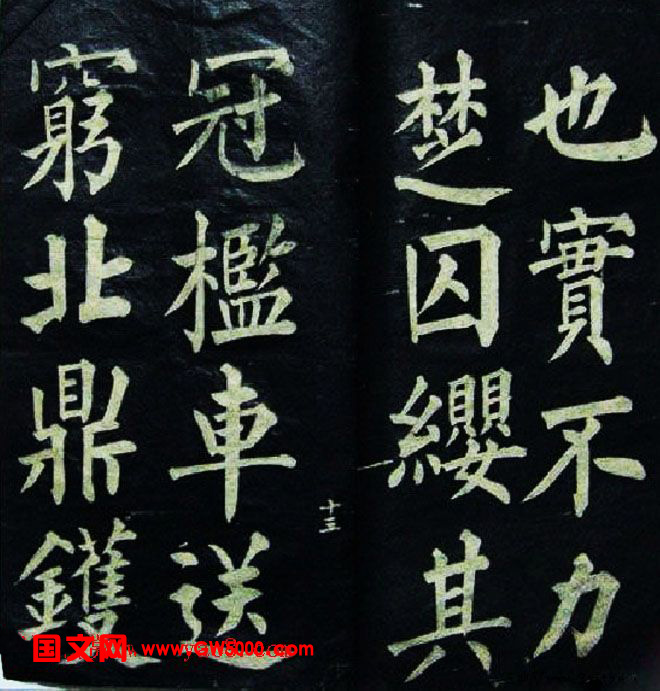 也實不力
楚囚纓其
冠檻車送
窮北鼎鑊
十三
国文网